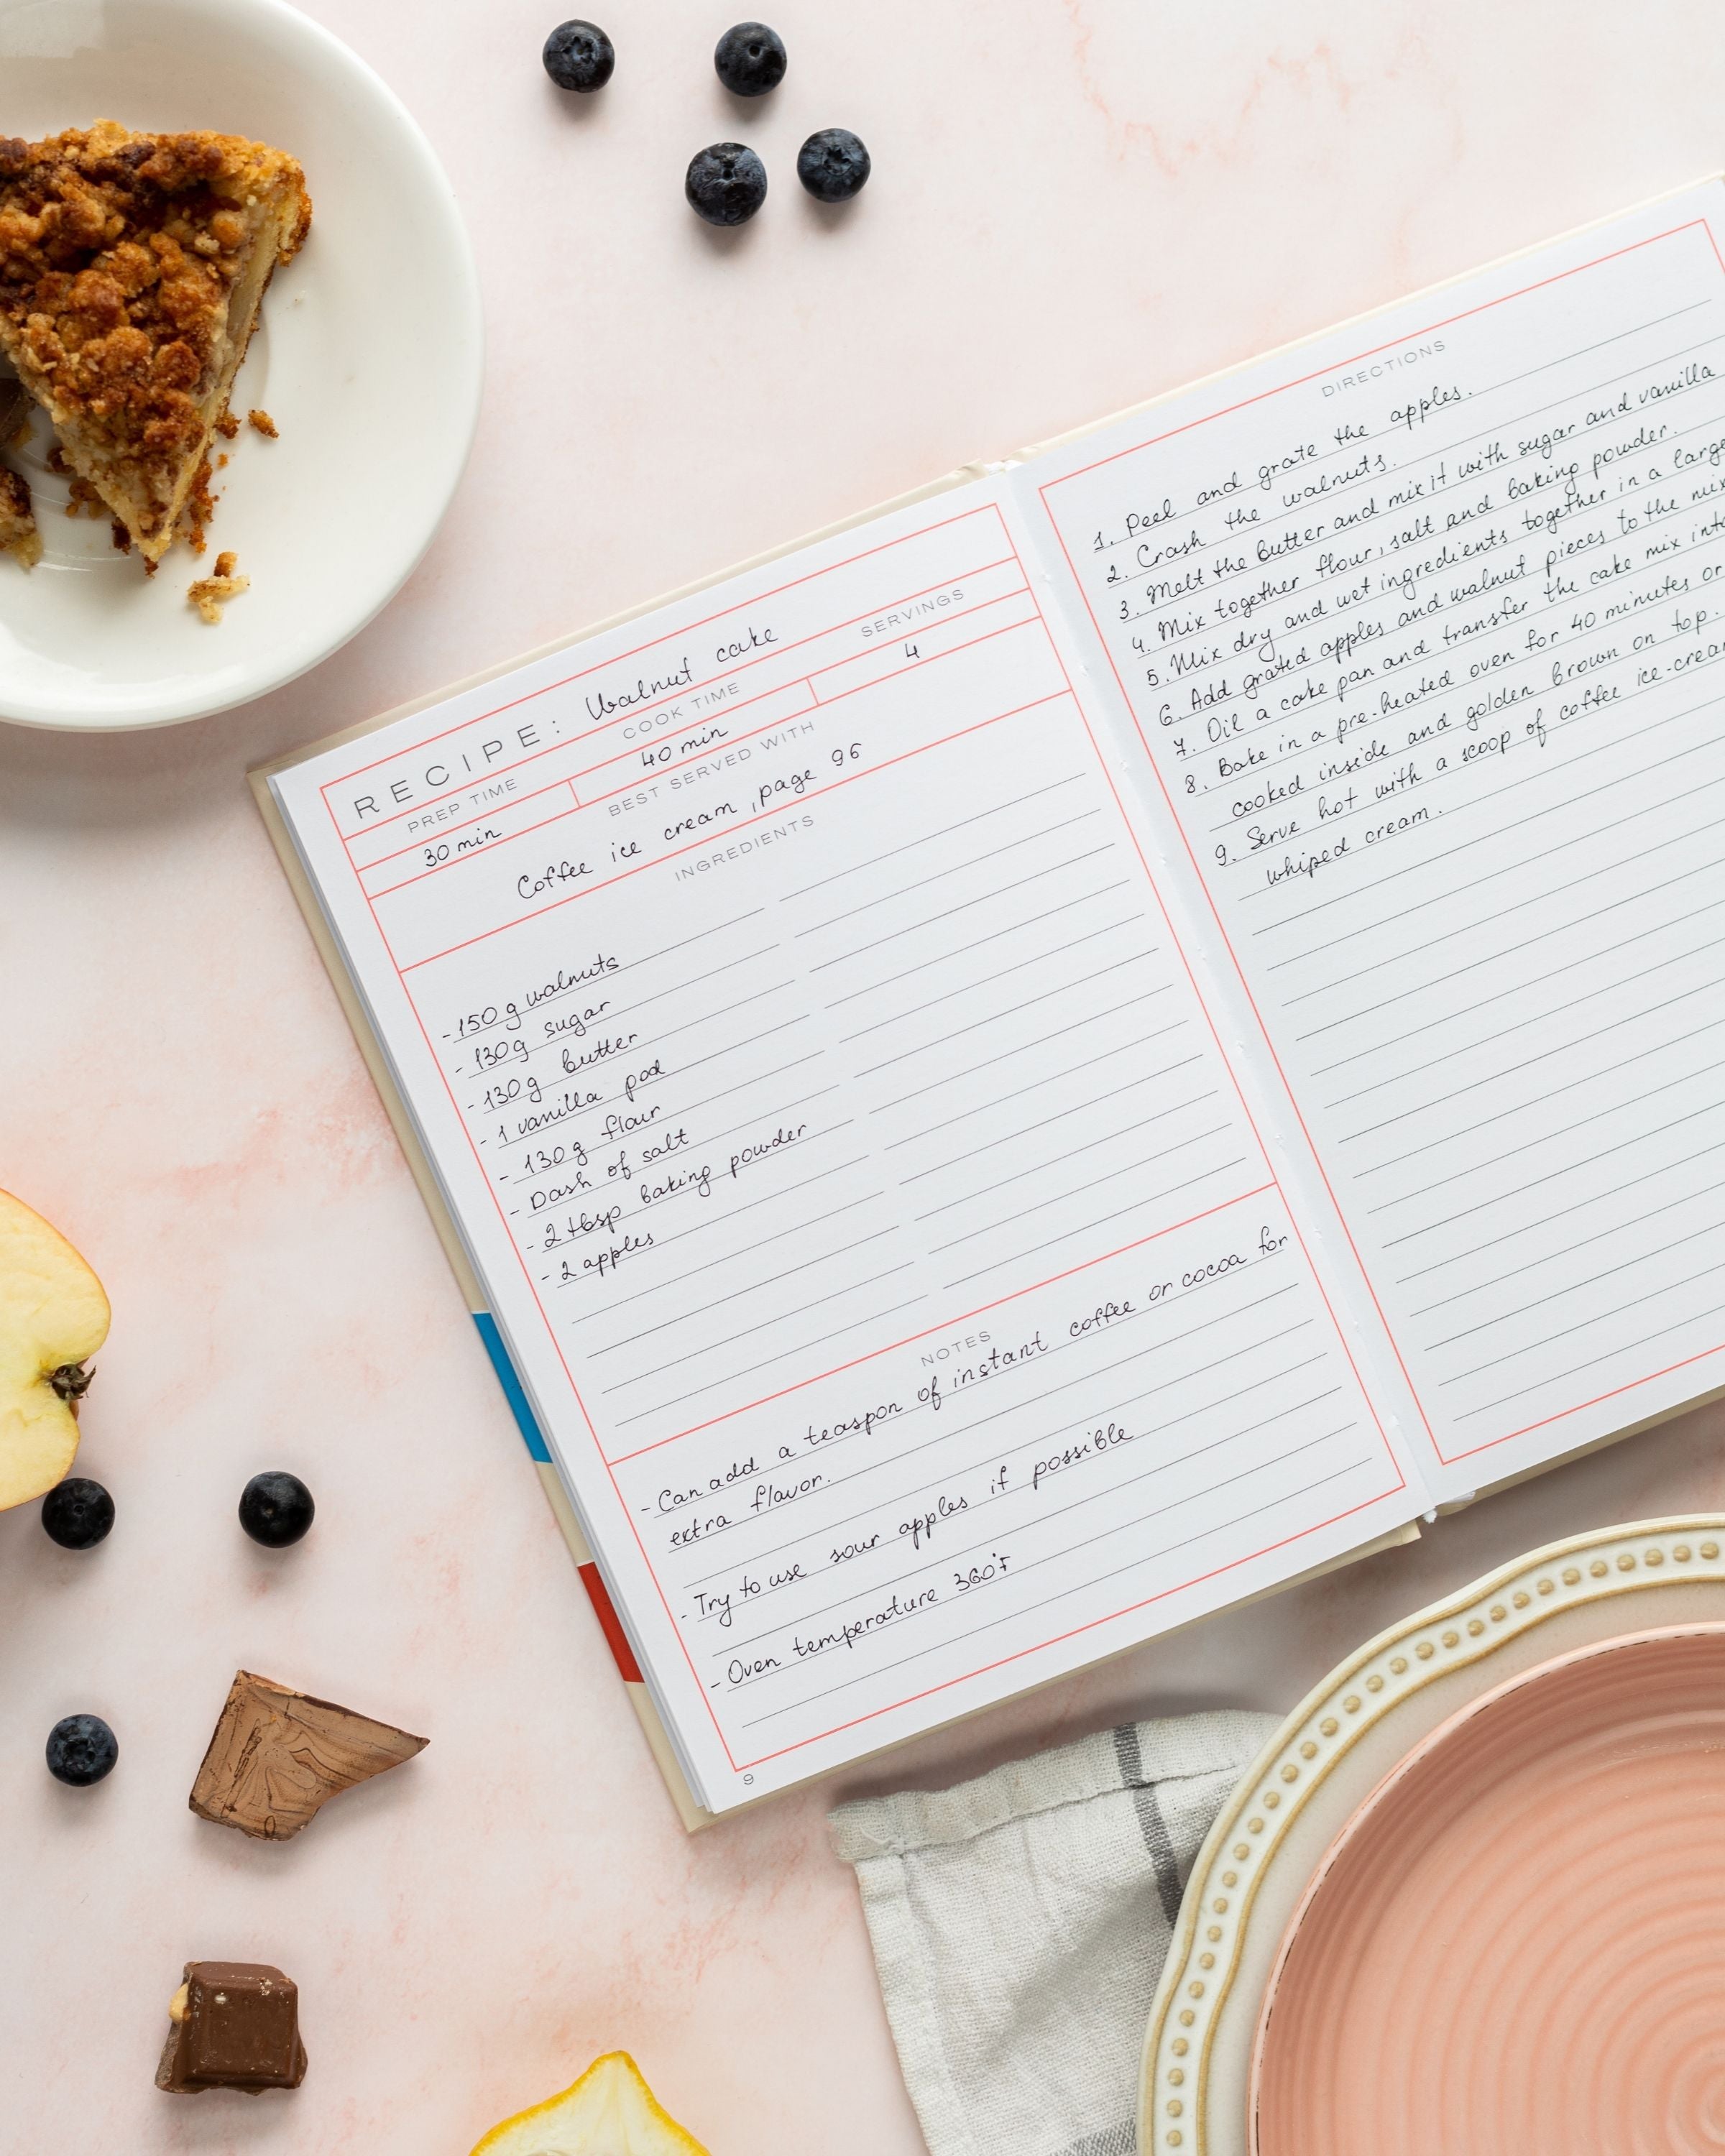 RECIPE: Walnut cake
PREP TIME
COOK TIME
SERVINGS
30 min
40 min
4
BEST SERVED WITH
Coffee ice cream, page 96
INGREDIENTS
- 150 g walnuts
- 130g sugar
- 130g butter
- 1 vanilla pod
- 130g flour
- Dash of salt
- 2 tbsp baking powder
- 2 apples
NOTES
- Can add a teaspon of instant coffee or cocoa for
extra flavor.
- Try to use sour apples if possible
- Oven temperature 360°F
9
DIRECTIONS
1. Peel and grate the apples.
2. Crash the walnuts.
3. Melt the butter and mix it with sugar and vanilla
4. Mix together flour, salt and baking powder.
5. Mix dry and wet ingredients together in a large
6. Add grated apples and walnut pieces to the mix
7. Oil a cake pan and transfer the cake mix into
8. Bake in a pre-heated oven for 40 minutes or
cooked inside and golden brown on top.
9. Serve hot with a scoop of coffee ice-crea
whiped cream.